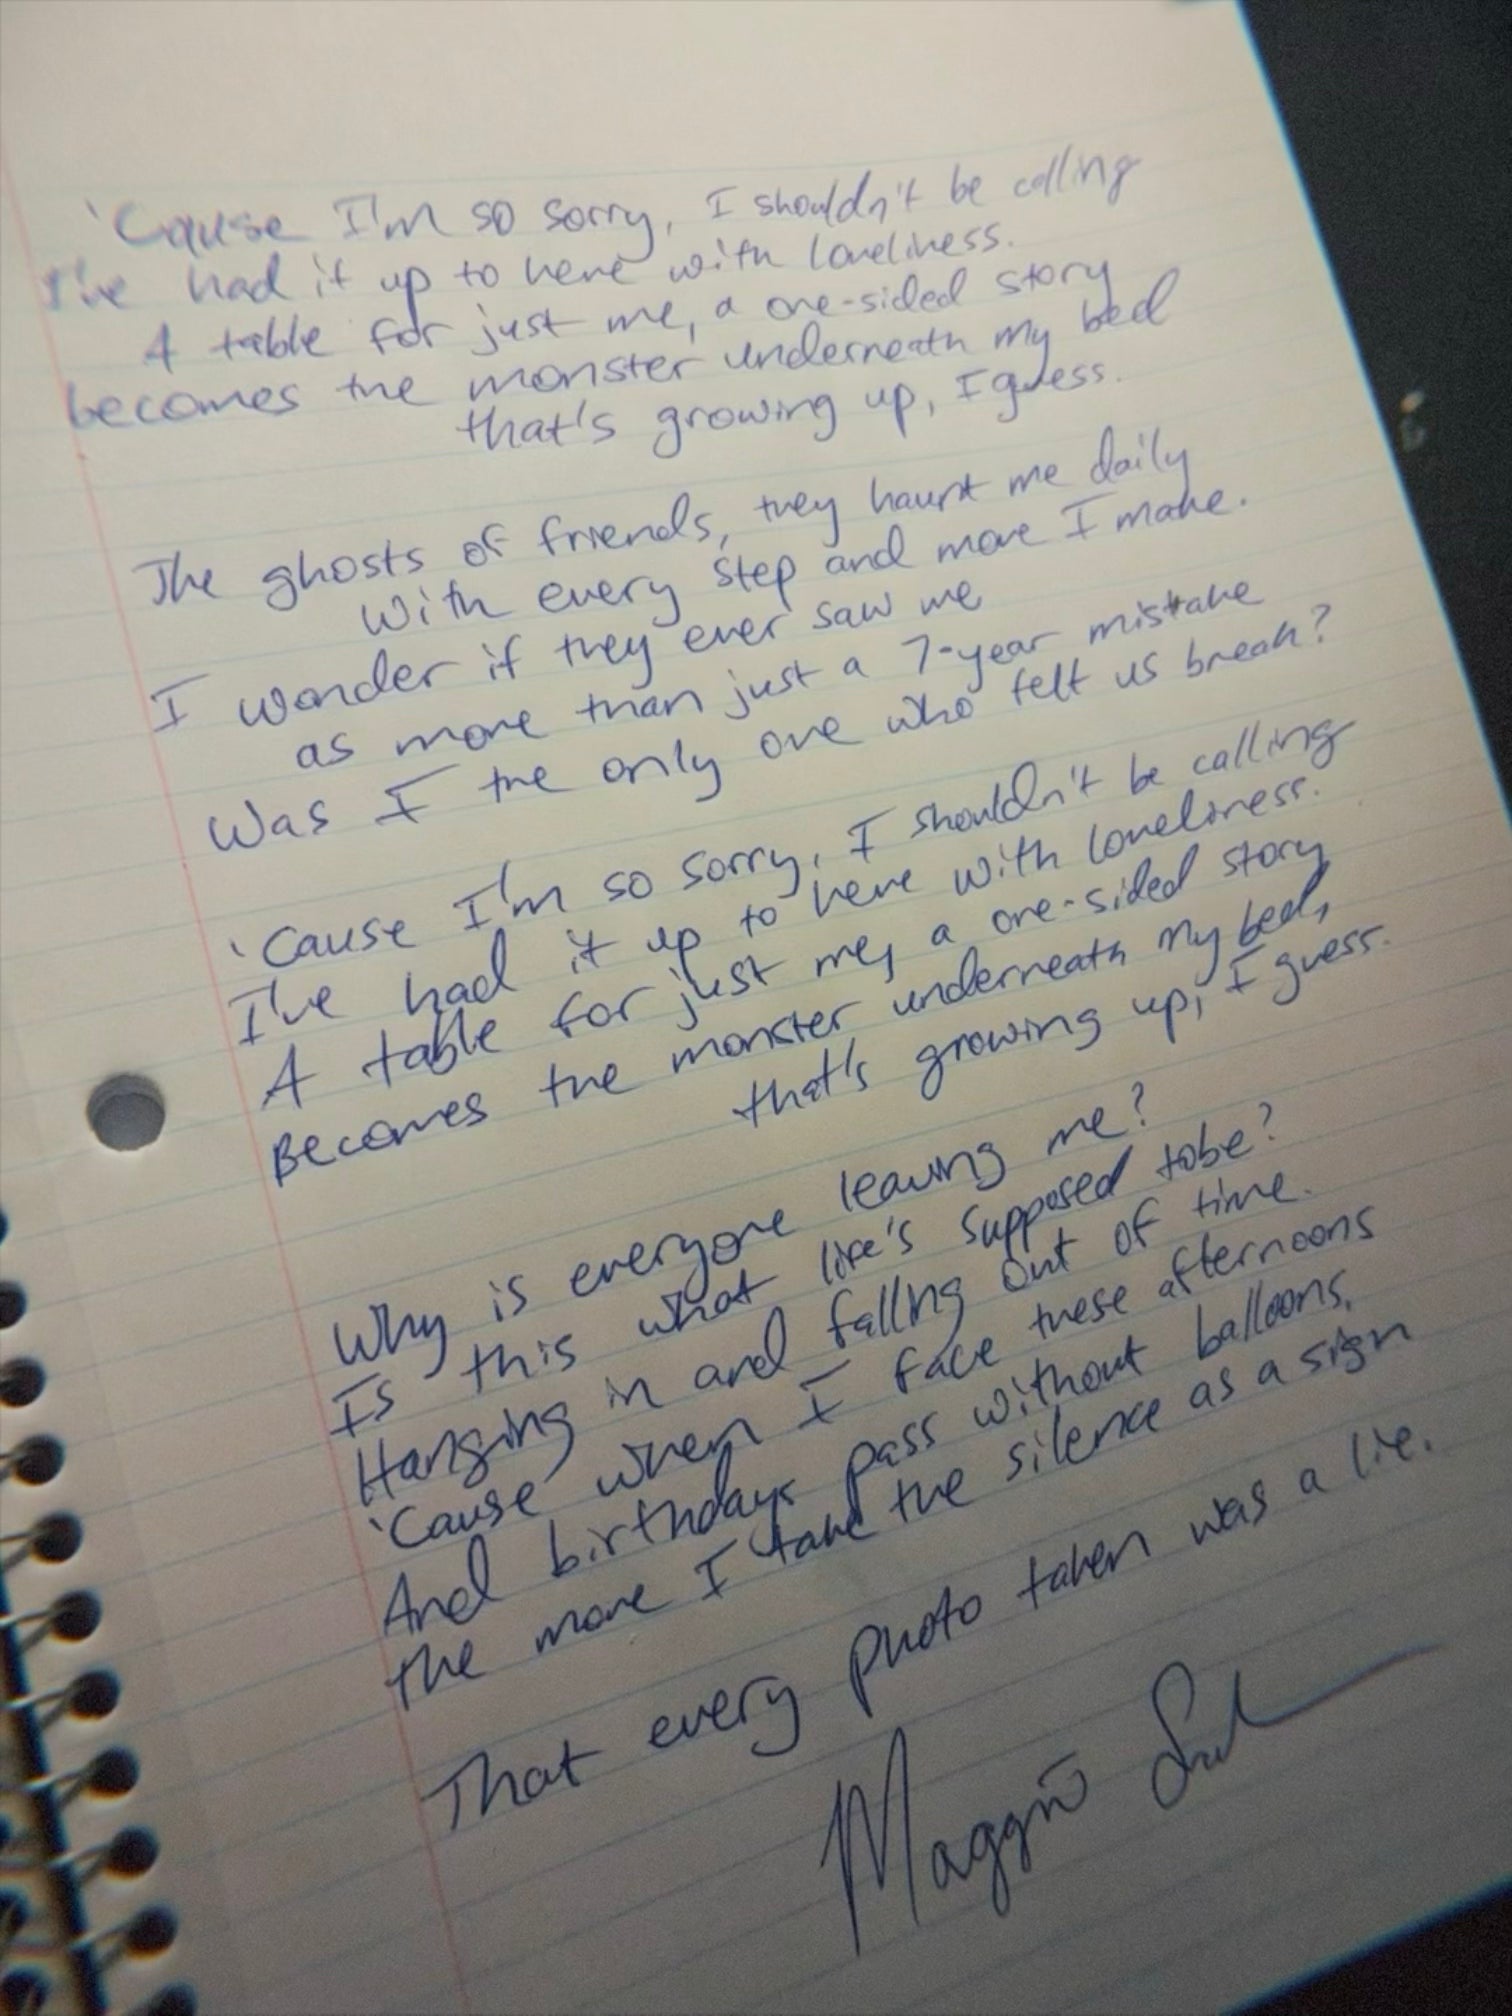 'Cause I'm so sorry, I shouldn't be calling
I've had it up to here with loneliness.
A table for just me, a one-sided story
becomes the monster underneath my bed
that's growing up, I guess.
The ghosts of friends, they haunt me daily
With every step and move I make.
I wonder if they ever saw me
as more than just a 7-year mistake
Was I the only one who felt us break?
'Cause I'm so sorry, I shouldn't be calling
I've had it up to here with loneliness.
A table for just me, a one-sided story
Becomes the monster underneath my bed,
that's growing up, I guess.
Why is everyone leaving me?
Is this what life's supposed to be?
Hanging in and falling out of time.
'Cause when I face these afternoons
And birthdays pass without balloons,
the more I take the silence as a sign
That every photo taken was a lie.
Maggie